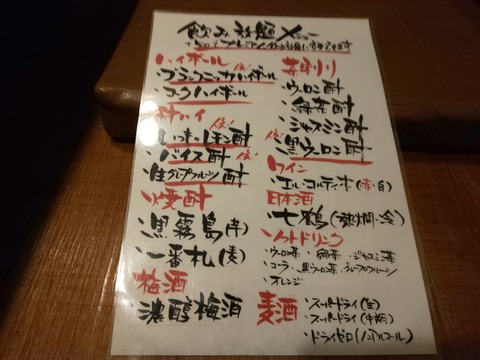 飲み放題メニュー
ハイボール
・ブラックニッカハイボール
・コークハイボール
酎ハイ
・レモン酎
・バイス酎
・生グレープフルーツ酎
焼酎
・黒霧島(芋)
・一番札(麦)
梅酒
・濃醇梅酒
茶割り
・ウーロン酎
・緑茶酎
・ジャスミン酎
・黒ウーロン酎
ワイン
・エル・コルティホ(赤・白)
日本酒
・七鶴(熱燗・冷)
ソフトドリンク
・ウーロン茶・緑茶・ジャスミン茶
・コーラ・黒ウーロン茶・グレープフルーツ
・オレンジ
麦酒
・スーパードライ(生)
・スーパードライ(中瓶)
・ドライゼロ(ノンアルコール)